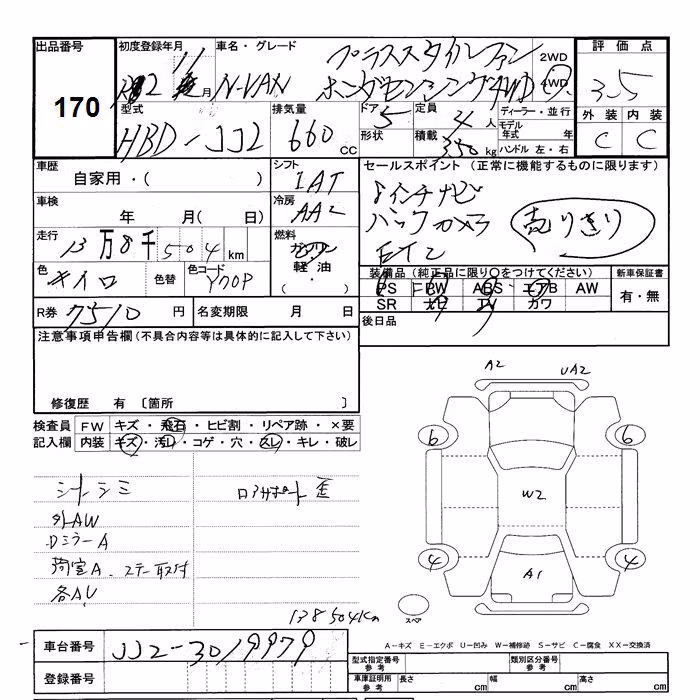 出品番号
170
初度登録年月
車名・グレード
プラススタイルファン
R2 年 11 月
N-VAN
ホンダセンシング4WD
2WD
4WD
評価点
3.5
外装 内装
C C
型式
HBD-JJ2
排気量
660 cc
ドア 5
形状
定員 4 人
積載 350 kg
ディーラー・並行
モデル年式 年
ハンドル 左・右
車歴
自家用・( )
シフト
IAT
車検
年 月( 日)
冷房
AAC
走行
13万8千504 km
燃料
ガソリン
軽油・
色
キイロ
色替
色コード
Y70P
R券 7510 円
名変期限 月 日
セールスポイント (正常に機能するものに限ります)
8インチナビ
バックカメラ
売りきり
ETC
装備品 (純正品に限り○をつけてください)
新車保証書
PS PW ABS エアB AW
SR ナビ TV カワ
有・無
後日品
注意事項申告欄(不具合内容等は具体的に記入して下さい)
修復歴 有 〔箇所 〕
検査員 FW キズ・飛石・ヒビ割・リペア跡・×要
記入欄 内装 キズ・汚レ・コゲ・穴・スレ・キレ・破レ
シートシミ
外AW
Dミラー A
荷室A、ステー取付
各AU
138504Km
A2 UA2
6 6
W2
4 4
A1
スペア
A-キズ E-エクボ U-凹み W-補修跡 S-サビ C-腐食 XX-交換済
車台番号
JJ2-3019979
登録番号
型式指定番号 参考
類別区分番号 参考
車庫証明用 参考
長さ cm
幅 cm
高さ cm